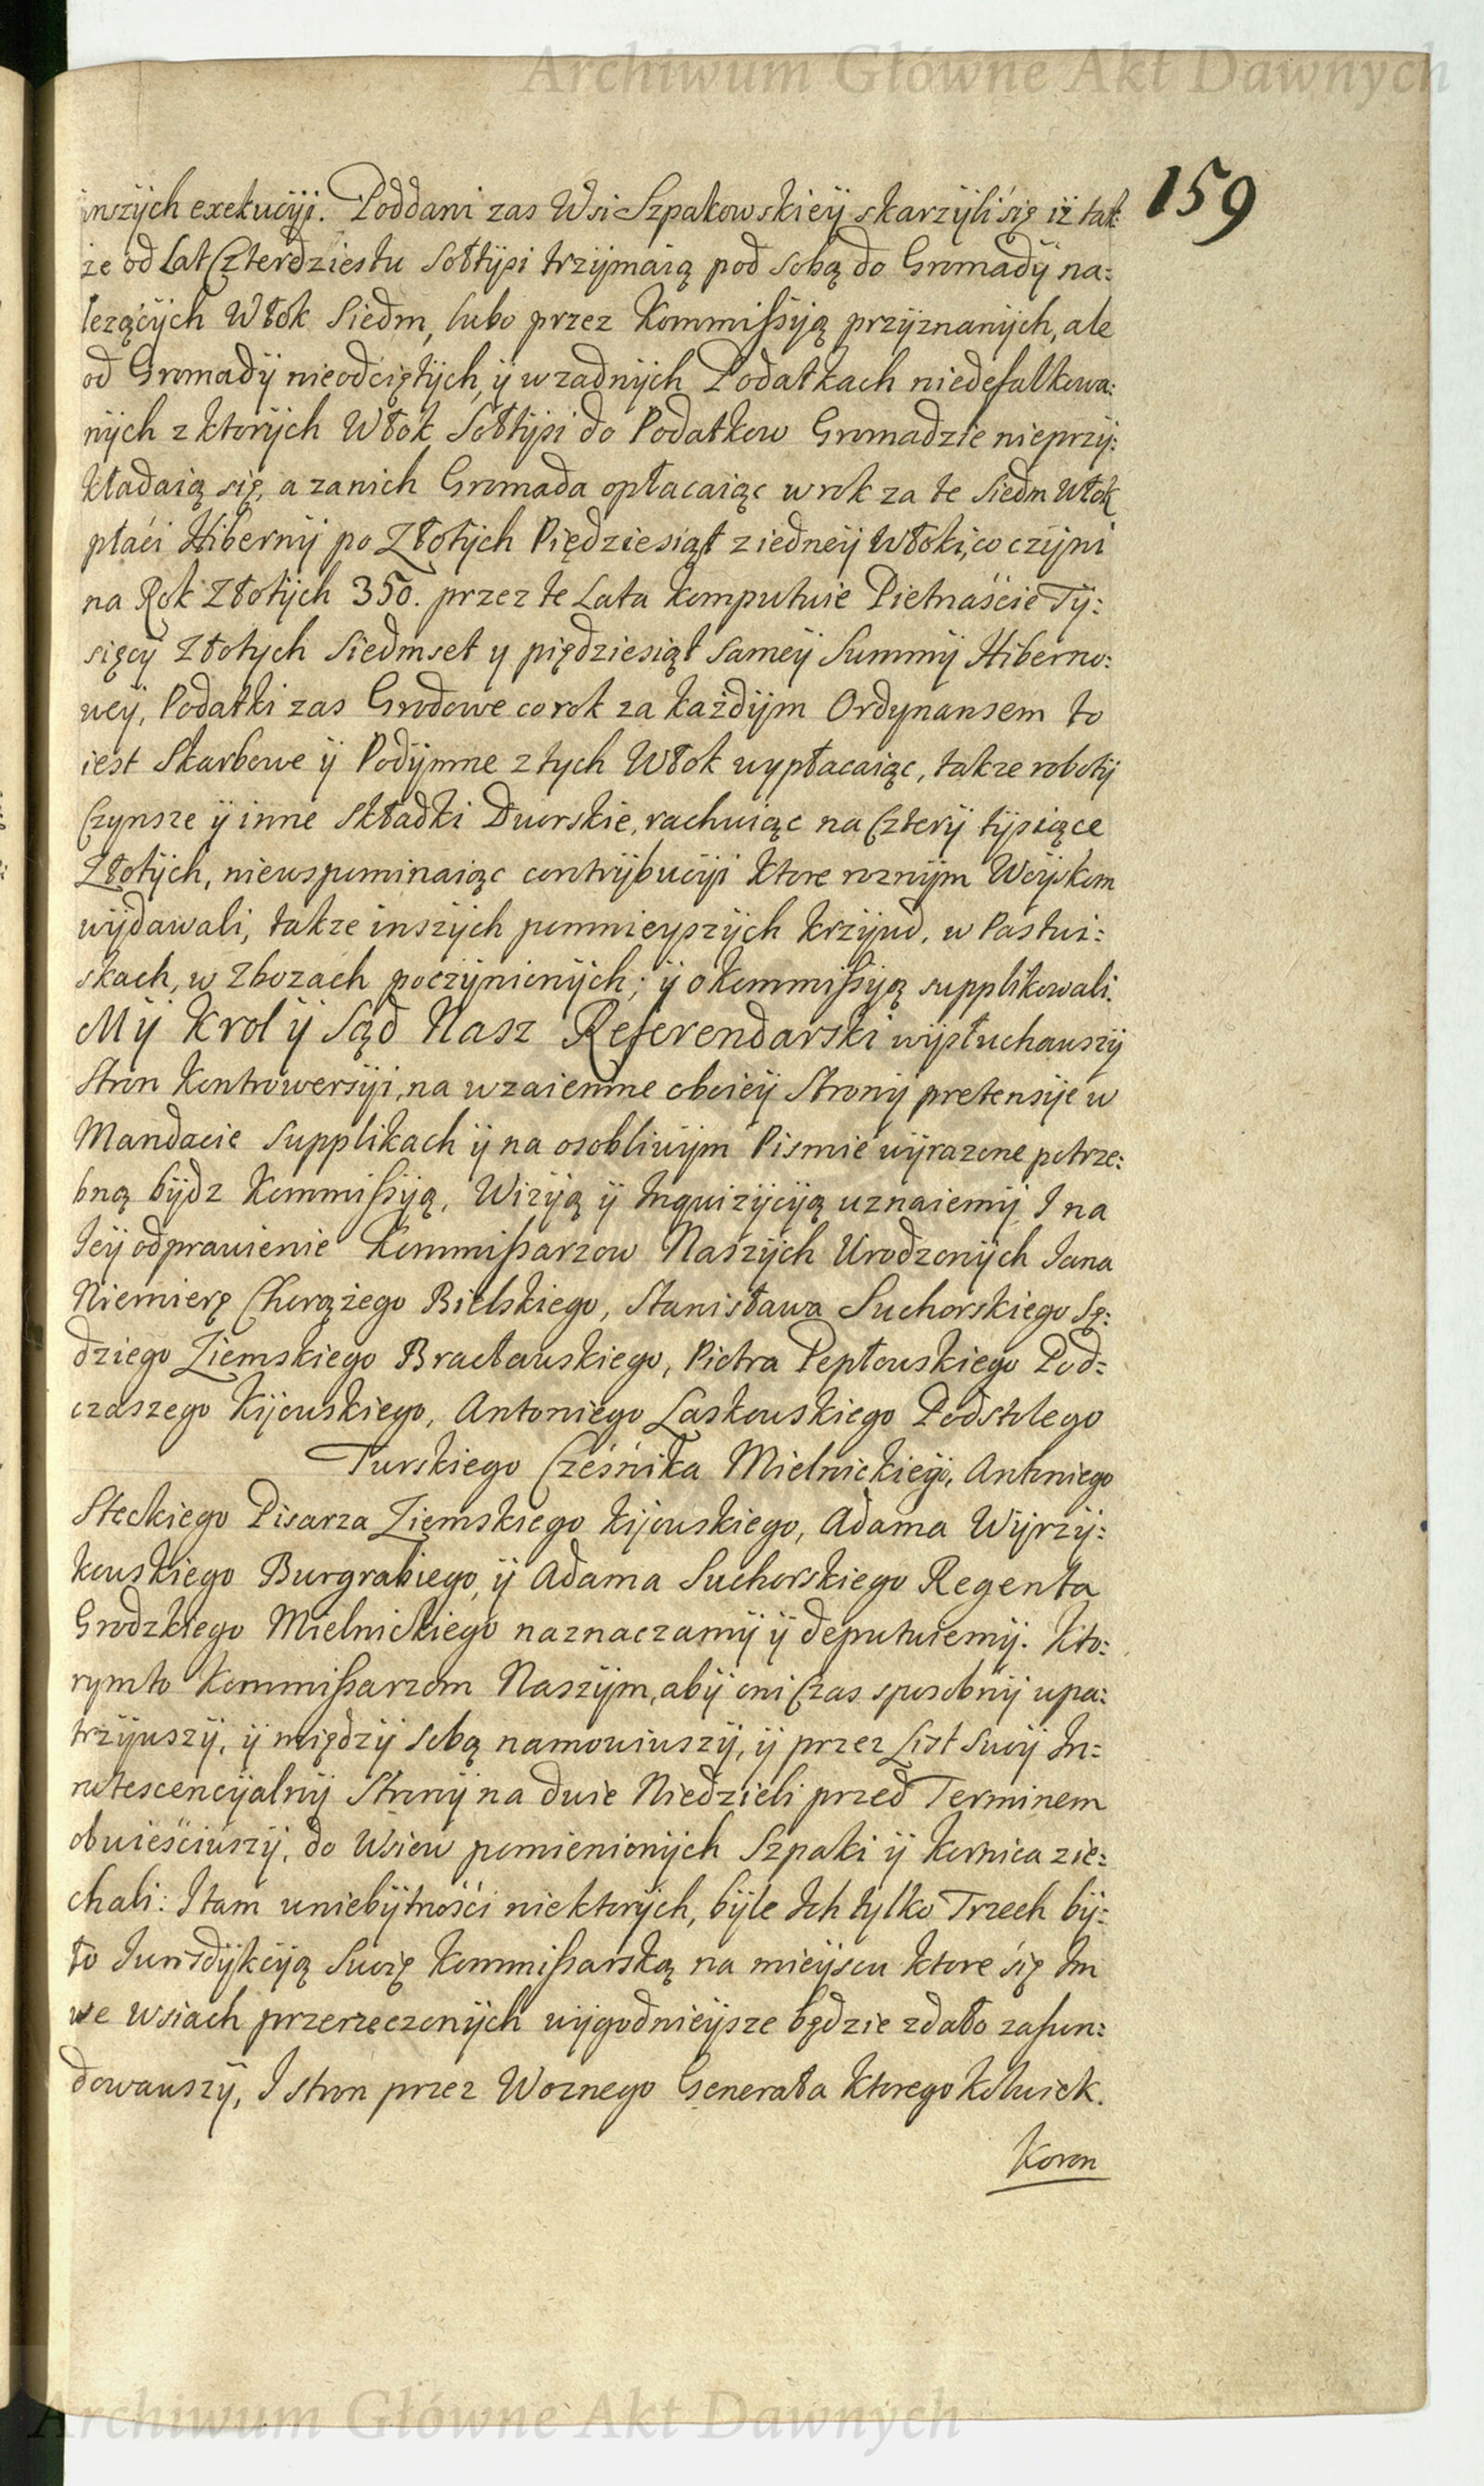 Archiwum Główne Akt Dawnych
159
inszÿch exekucÿi. Poddani zas Wsi Szpakowskieÿ skarzÿli się iż tak
że od Lat Czterdziestu Sołtÿsi trzÿmaią pod sobą do Gromadÿ na:
lezącÿch Włok Siedm, lubo przez Kommissÿą przÿznanÿch, ale
od Gromadÿ nieodciętÿch, ÿ w zadnÿch Podatkach niedefalkowa:
nÿch z ktorÿch Włok Sołtÿsi do Podatkow Gromadzie nieprzÿ:
kładaią się, a zanich Gromada opłacaiąc w rok za te Siedm Włok
płaci Hibernÿ po Złotÿch Piędziesiąt z iedneÿ Włoki, co czÿni
na Rok Złotÿch 350. przez te Lata komputuie Pietnaście Tÿ:
sięcÿ Złotych Siedmset y piędziesiąt Sameÿ Summÿ Hiberno:
weÿ, Podatki zas Grodowe co rok za każdÿm Ordynansem to
iest Skarbowe ÿ Podÿmne z tych Włok wypłacaiąc, takze robotÿ
Czynsze ÿ inne Składki Dworskie, rachuiąc na Czterÿ tÿsiące
Złotÿch, niewspominaiąc contrÿbucÿi Ktore roznÿm Woÿskom
wÿdawali, takze inszÿch pomnieyszÿch krzÿwd, w Pastwi:
skach, w Zbozach poczÿnionÿch; ÿ o kommissÿą supplikowali.
Mÿ Krol ÿ Sąd Nasz Referendarski wÿsłuchawszÿ
Stron Kontrowersÿi, na wzaiemne oboieÿ Stronÿ pretensÿe w
Mandacie Supplikach ÿ na osobliwÿm Pismie wÿrazone potrze:
bną bÿdz Kommissÿą, Wizÿą ÿ Inquizÿcÿą uznaiemÿ I na
Ieÿ odprawienie Kommissarzow Naszÿch Urodzonÿch Jana
Niemierę Chorążego Bielskiego, Stanisława Suchorskiego Sę:
dziego Ziemskiego Bracławskiego, Piotra Pepłowskiego Pod:
czaszego Kijowskiego, Antoniego Laskowskiego Podstolego
Turskiego Cześnika Mielnickiego, Antoniego
Steckiego Pisarza Ziemskiego Kijowskiego, Adama Wÿrzÿ:
kowskiego Burgrabiego, ÿ Adama Suchorskiego Regenta
Grodzkiego Mielnickiego naznaczamÿ ÿ deputuiemÿ. Kto:
rym to Kommissarzom Naszÿm, abÿ oni Czas sposobnÿ upa:
trzÿwszÿ, ÿ międzÿ sobą namowiwszÿ, ÿ przez List Swoÿ In:
notescencÿalnÿ Stronÿ na dwie Niedzieli przed Terminem
obwieściwszÿ, do Wsiow pomienionÿch Szpaki ÿ Kornica zie:
chali: I tam w niebÿtności niektorÿch, bÿle Ich tylko Trzech bÿ:
ło Jurisdÿkcÿą Swoię Kommissarską na mieÿscu ktore się Im
we Wsiach przerzeczonÿch wÿgodnieÿsze będzie zdało zafun:
dowawszÿ, I stron przez Woznego Generała Ktorego kolwiek.
Koron
Archiwum Główne Akt Dawnych